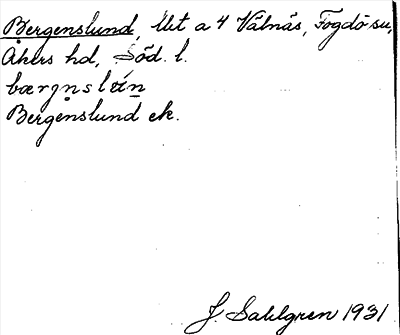 Bergenslund, Utt a 4 Valnäs, Fogdö sn,
Åkers hd, Söd. l.
Bergenslund ek.
J. Sahlgren 1931